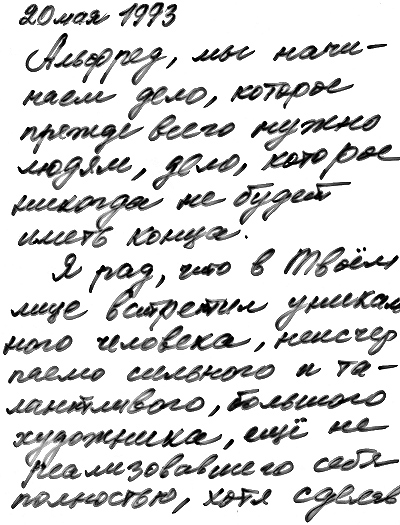 20 мая 1993
Альфред, мы начи-
наем дело, которое
прежде всего нужно
людям, дело, которое
никогда не будет
иметь конца.
Я рад, что в Твоём
лице встретил уникаль
ного человека, неисчер
паемо сильного и та-
лантливого, большого
художника, ещё не
реализовавшего себя
полностью, хотя сделав